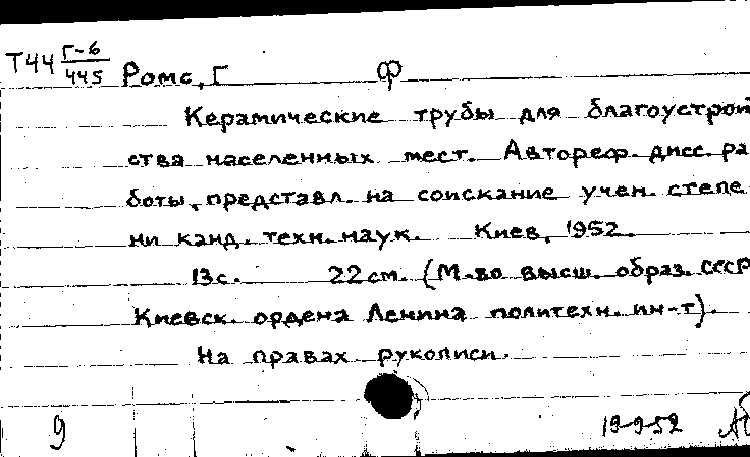 Т44 Г-6/445 Ромс, Г Ф
Керамические трубы для благоустрой
ства населенных мест. Автореф. дисс. ра
боты, представл. на соискание учен. степе
ни канд. техн. наук. Киев, 1952.
13с. 22см. (М-во высш. образ. СССР
Киевск. ордена Ленина политехн. ин-т).
На правах рукописи.
9 19-9-52